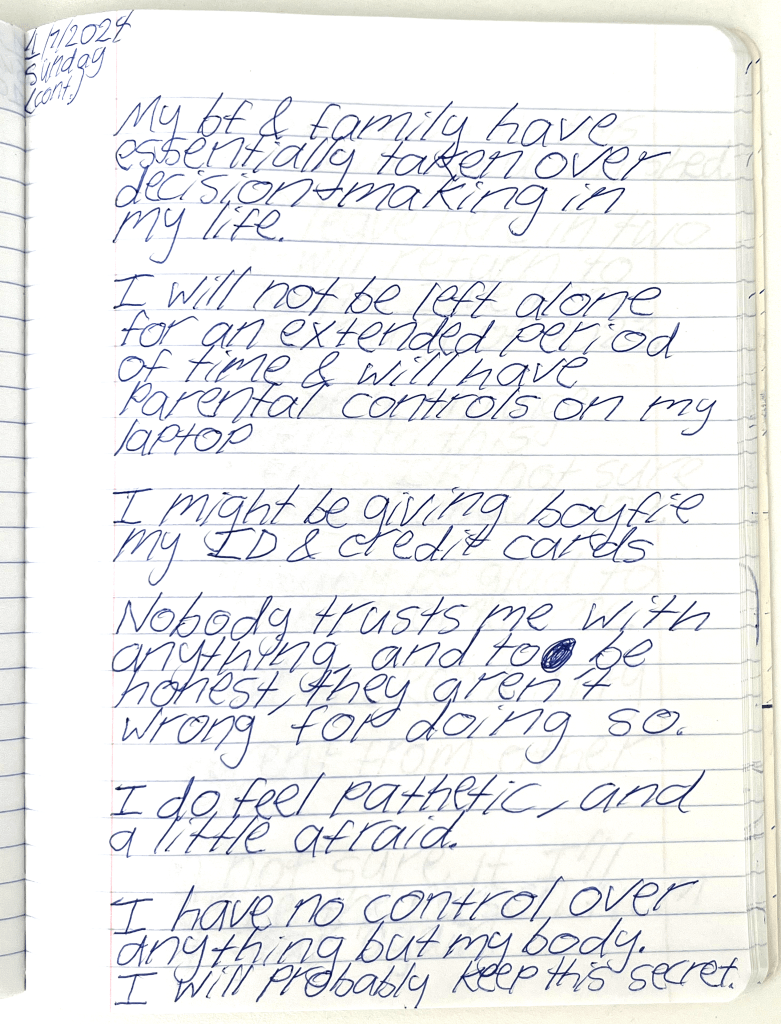 1/7/2024
Sunday
(cont.)
My bf & family have
essentially taken over
decision-making in
my life.
I will not be left alone
for an extended period
of time & will have
parental controls on my
laptop
I might be giving boyfie
my ID & credit cards
Nobody trusts me with
anything, and to be
honest, they aren't
wrong for doing so.
I do feel pathetic, and
a little afraid.
I have no control over
anything but my body.
I will probably keep this secret.